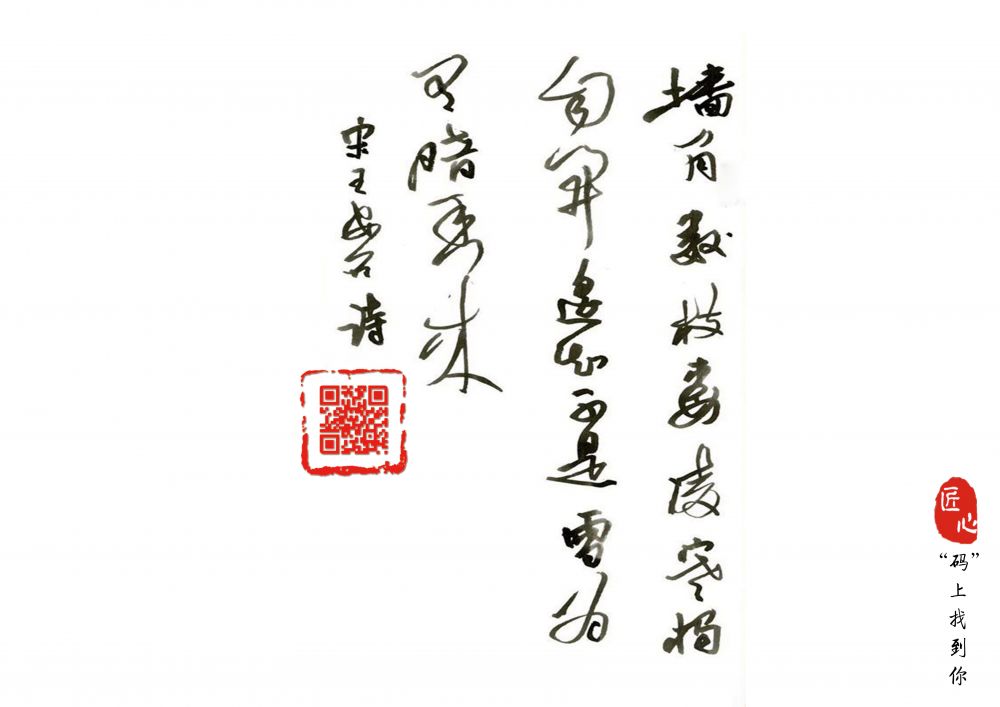 墙角数枝梅凌寒独
自開遥知不是雪为
有暗香来
宋王安石诗
匠心
“码”上找到你